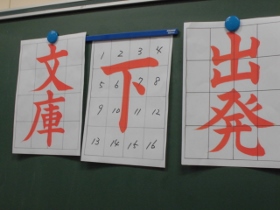 文庫
下
1 2 3 4
5 6 7 8
9 10 11 12
13 14 15 16
出発